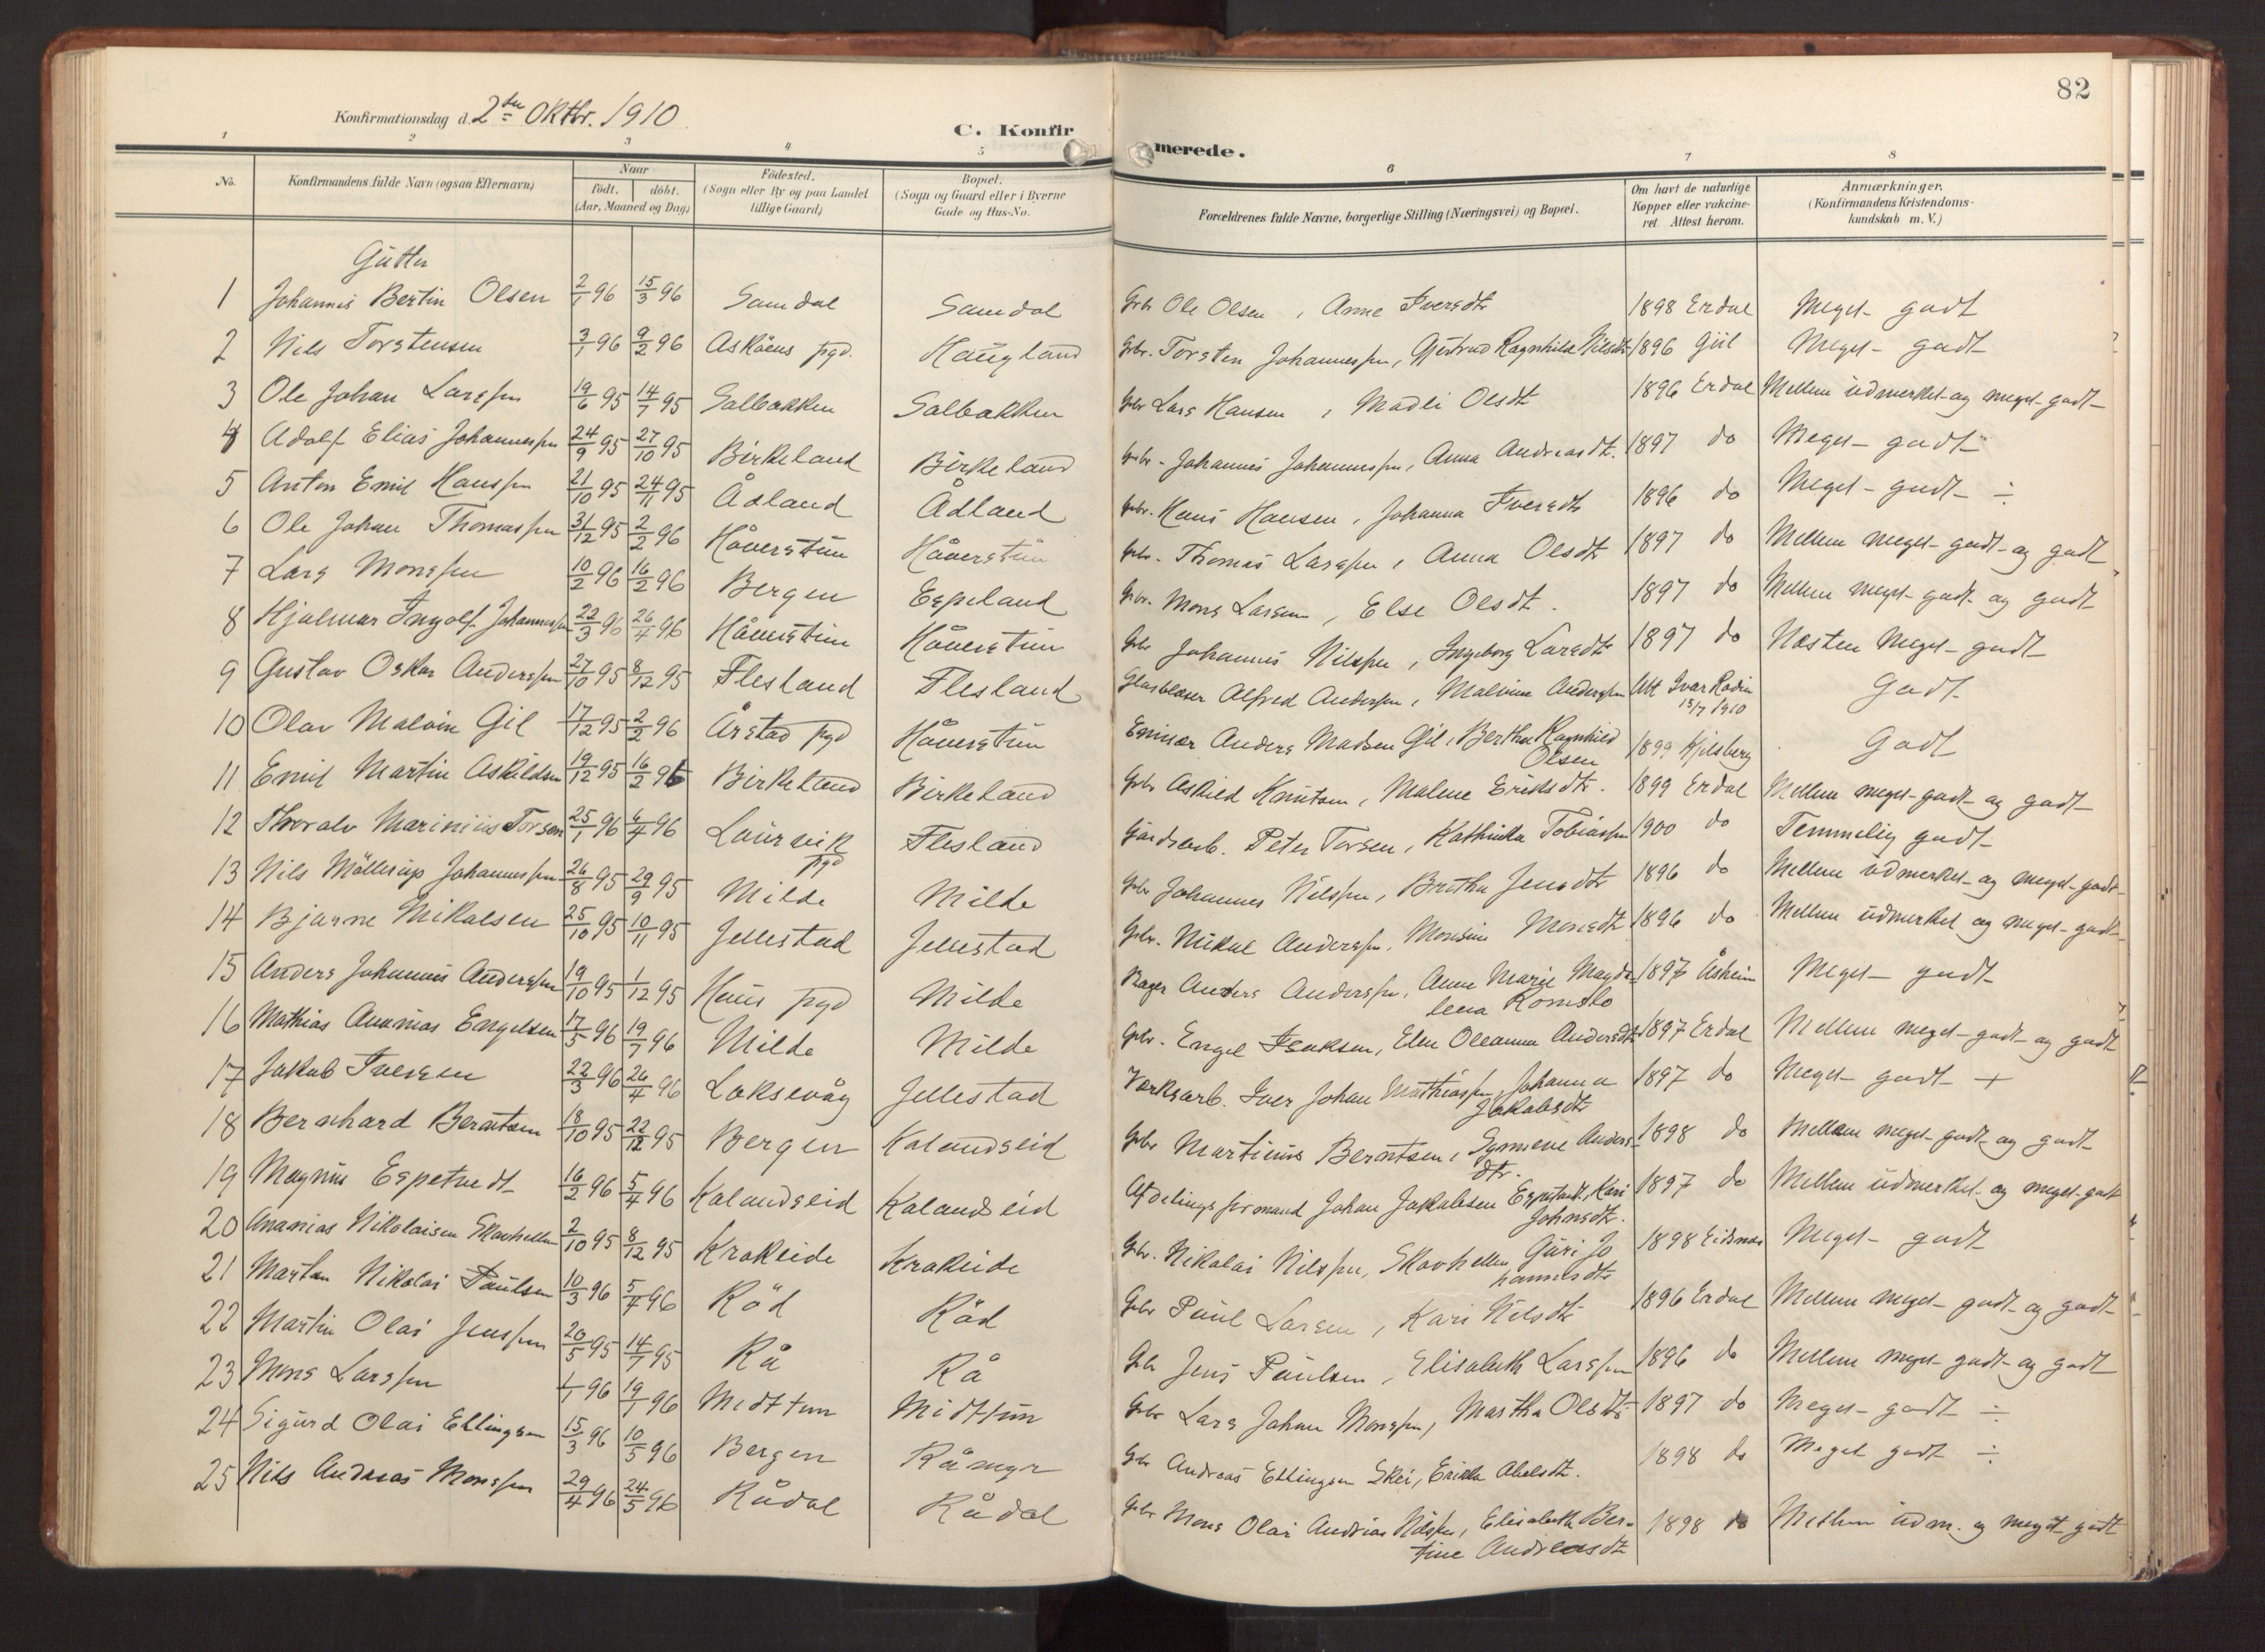 82
Konfirmationsdag d. 2den Oktbr. 1910
C. Konfirmerede.
1 2 3 4 5 6 7 8
No. Konfirmandens fulde Navn (ogsaa Efternavn) Naar født. døbt. (Aar, Maaned og Dag) Fødested. (Sogn eller By og paa Landet tillige Gaard) Bopæl. (Sogn og Gaard eller i Byerne Gade og Hus-No. Forældrenes fulde Navne, borgerlige Stilling (Næringsvei) og Bopæl. Om havt de naturlige Kopper eller vakcineret. Attest herom. Anmærkninger. (Konfirmandens Kristendomskundskab m. V.)
Gutter
1 Johannes Bertin Olsen 2/1 96 15/3 96 Samdal Samdal Gbr Ole Olsen, Anne Iversdtr 1898 Erdal Meget godt
2 Nils Torstensen 3/1 96 9/2 96 Askøens pgd. Haugland Gbr. Torsten Johannessen, Gjertrud Ragnhilda Nilsdtr 1896 Giil Meget godt
3 Ole Johan Larssen 19/6 95 14/7 95 Salbakken Salbakken Gbr Lars Hansen, Madli Olsdtr 1896 Erdal Mellem udmerket og meget godt
4 Adolf Elias Johannessen 24/9 95 27/10 95 Birkeland Birkeland Gbr. Johannes Johannessen, Anna Andreasdtr. 1897 do Meget godt
5 Anton Emil Hanssen 21/10 95 24/11 95 Ådland Ådland Gbr. Hans Hansen, Johanna Iversdtr 1896 do Meget godt ÷
6 Ole Johan Thomassen 31/12 95 2/2 96 Håverstun Håverstun Gbr. Thomas Larssen, Anna Olsdtr 1897 do Mellem meget godt og godt
7 Lars Monssen 10/2 96 16/2 96 Bergen Espeland Gbr. Mons Larsen, Else Olsdtr. 1897 do Mellem meget godt og godt
8 Hjalmar Ingolf Johannessen 22/3 96 26/4 96 Håverstun Håverstun Gbr Johannes Nilssen, Ingeborg Larsdtr 1897 do Næsten Meget godt
9 Gustav Oskar Anderssen 27/10 95 8/12 95 Flesland Flesland Glasblæser Alfred Anderssen, Malvine Anderssen Att Ivar Rodin 15/7 1910 Godt
10 Olav Malvin Gil 17/12 95 2/2 96 Årstad pgd Håverstun Emisær Anders Madsen Gil, Bertha Ragnhild Olsen 1899 Kjilsberg Godt
11 Emil Martin Askildsen 19/12 95 16/2 96 Birkeland Birkeland Gbr Askild Knutsen, Malene Eriksdtr. 1899 Erdal Mellem meget godt og godt
12 Thoralv Marinius Torsen 25/1 96 6/4 96 Laurvik pgd Flesland Gårdsarb. Peter Torsen, Kathinka Tobiassen 1900 do Temmelig godt
13 Nils Möllerup Johannessen 26/8 95 29/9 95 Milde Milde Gbr Johannes Nilssen, Brithe Jensdtr 1896 do Mellem udmerket og meget godt
14 Bjarne Mikalsen 25/10 95 10/11 95 Jellestad Jellestad Gbr. Mikal Anderssen, Monsine Monsdtr 1896 do Mellem udmerket og meget godt
15 Anders Johannes Anderssen 19/10 95 1/12 95 Haus pgd Milde Bager Anders Anderssen, Anne Marie Magdalena Romslo 1897 Åsheim Meget godt
16 Mathias Ananias Engelsen 17/5 96 19/7 96 Milde Milde Gbr. Engel Isaksen, Elen Oleanna Andersdtr 1897 Erdal Mellem meget godt og godt
17 Jakob Iversen 22/3 96 26/4 96 Laksevåg Jellestad Værksarb. Iver Johan Mathiassen, Johanna Jakobsdtr 1897 do Meget godt +
18 Bernhard Berntsen 18/10 95 22/12 95 Bergen Kalandseid Gbr Martinus Berntsen, Synneve Andersdtr. 1898 do Mellem meget godt og godt
19 Magnus Espetvedt 16/2 96 5/4 96 Kalandseid Kalandseid Afdelingsformand Johan Jakobsen Espetvedt, Kari Johnsdtr. 1897 do Mellem udmerket og meget godt
20 Ananias Nikolaisen Skarhellen 2/10 95 8/12 95 Krokeide Krokeide Gbr. Nikolai Nilssen, Skarhellen Guri Johannesdtr 1898 Eidsnæs Meget godt
21 Martan Nikolai Paulsen 10/3 96 5/4 96 Röd Röd Gbr Paul Larsen, Kari Nilsdtr 1896 Erdal Mellem meget godt og godt
22 Martin Olai Jenssen 20/5 95 14/7 95 Rå Rå Gbr Jens Paulsen, Elisabeth Larssen 1896 do Mellem meget godt og godt
23 Mons Larssen 1/1 96 19/1 96 Midttun Midttun Gbr Lars Johan Monssen, Martha Olsdtr 1897 do Meget godt ÷
24 Sigurd Olai Ellingsen 15/3 96 10/5 96 Bergen Råmyr Gbr Andreas Ellingsen Skei, Erikka Abelsdtr. 1898 do Meget godt ÷
25 Nils Andreas Monssen 29/4 96 24/5 96 Rådal Rådal Gbr Mons Olai Andreas Nilssen, Elisabeth Bertine Andreasdtr 1898 do Mellem udm. og meget godt